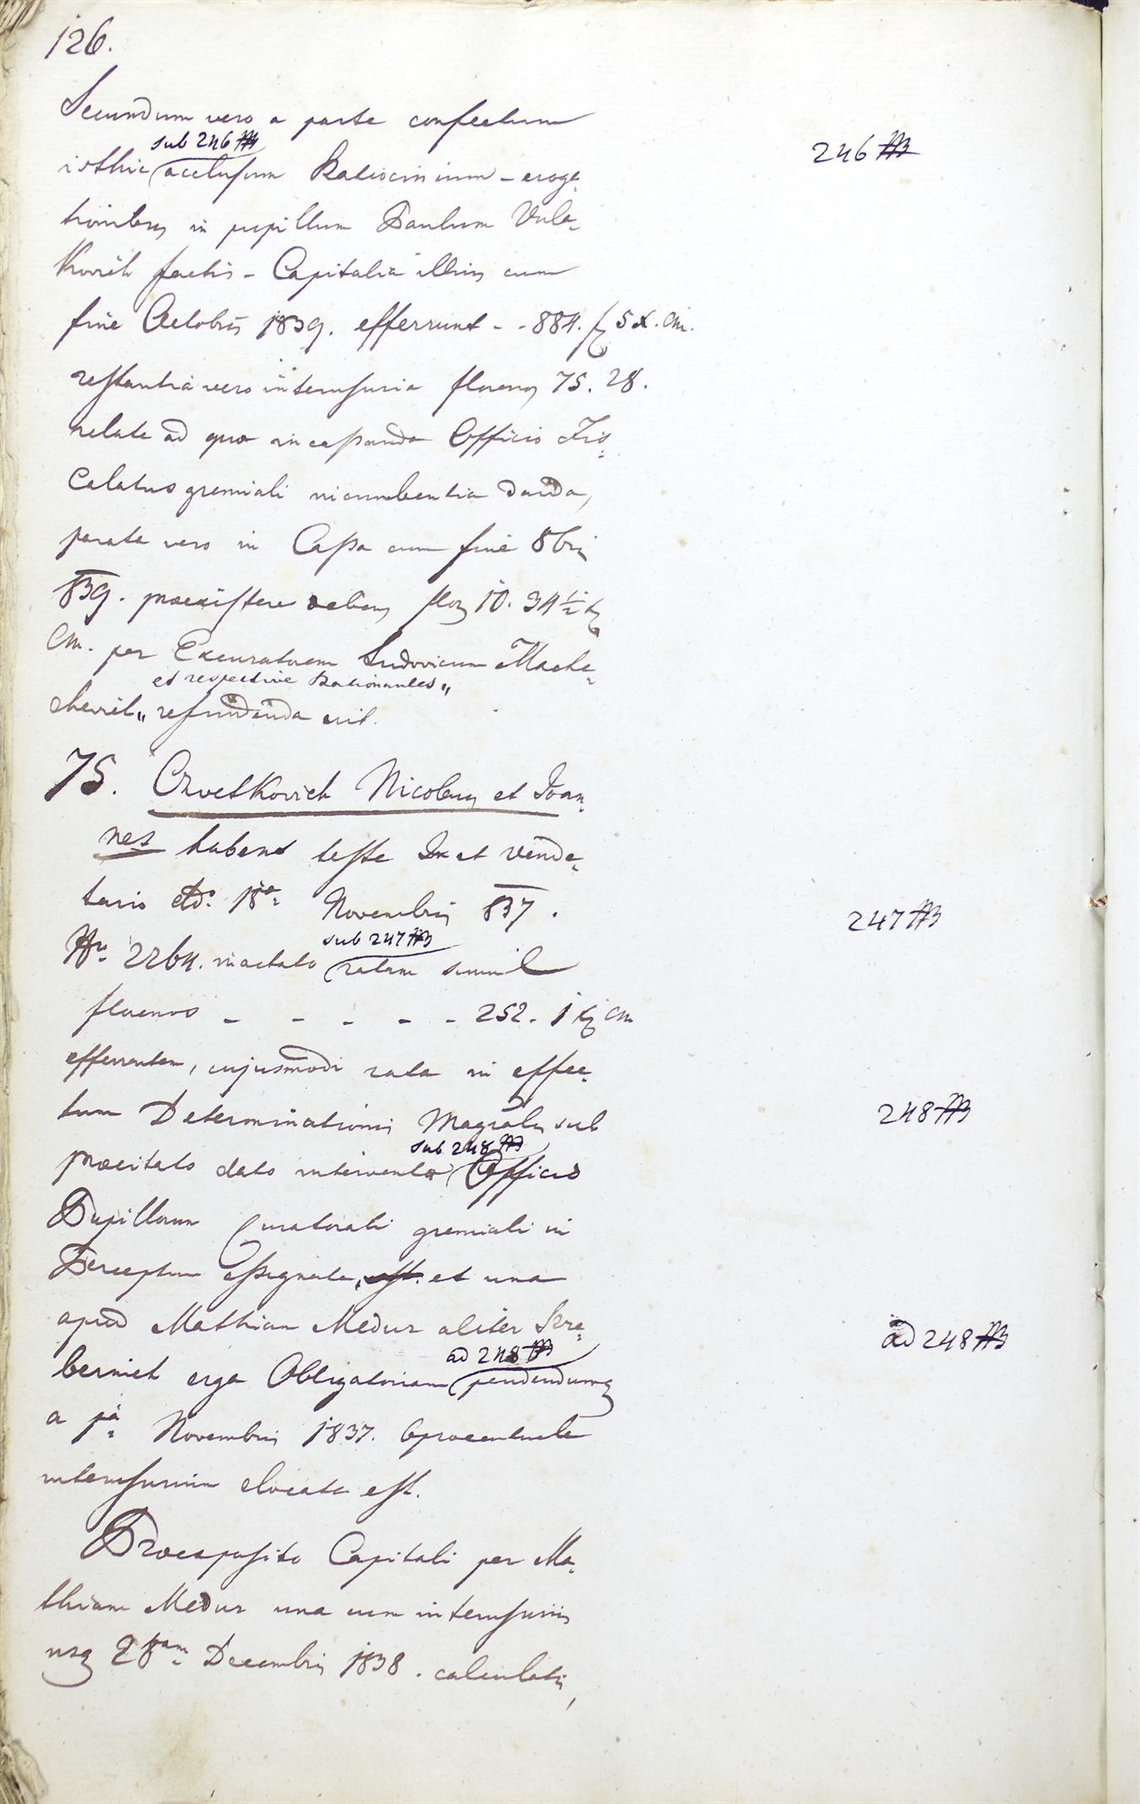 126.
Secundum vero a parte confectum
sub 246
246
isthic acclusum Ratiocinium – eroga-
tionibus in pupillum Paulum Vula-
kovich factis – Capitalia illius cum
fine Octobris 1839. efferrunt - - 884. f 5 x. Cm.
restantia vero interusuria florenos 75. 28.
relate ad quae incassanda Officio Fis-
calatus gremiali incumbentia danda,
parata vero in Cassa cum fine 8bris
839. praeexistere debens flor 10. 34 1/2 x
Cm. per Excuratorem Ludovicum Mache-
et respective Rationantes „
chevich „ refundenda erit.
75. Czvetkovich Nicolaus et Joan-
nes habent teste In et Vende-
tario ddo 18a Novembris 837.
247
Nr 2264. mactato
sub 247
ratam simul
florenos - - - - - 252. 1 x Cm
efferentem, cujusmodi rata in effec-
tum Determinationis Magralis sub
248
sub 248
praecitato dato interventae Officio
Pupillorum Curatorali gremiali in
Perceptum assignata, est. et una
apud Mathiam Medur aliter Szre-
ad 248
ad 248
bernich erga Obligatoriam pendendumq
a 1a Novembris 1837. 6procentuale
interusurium elocata est.
Praeexposito Capitali per Ma-
thiam Medur una cum interusuriis
usq 28am Decembris 1838. calculatis,